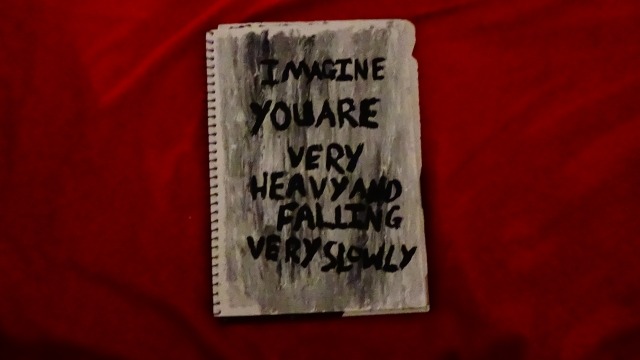 IMAGINE
YOU ARE
VERY
HEAVY AND
FALLING
VERY SLOWLY